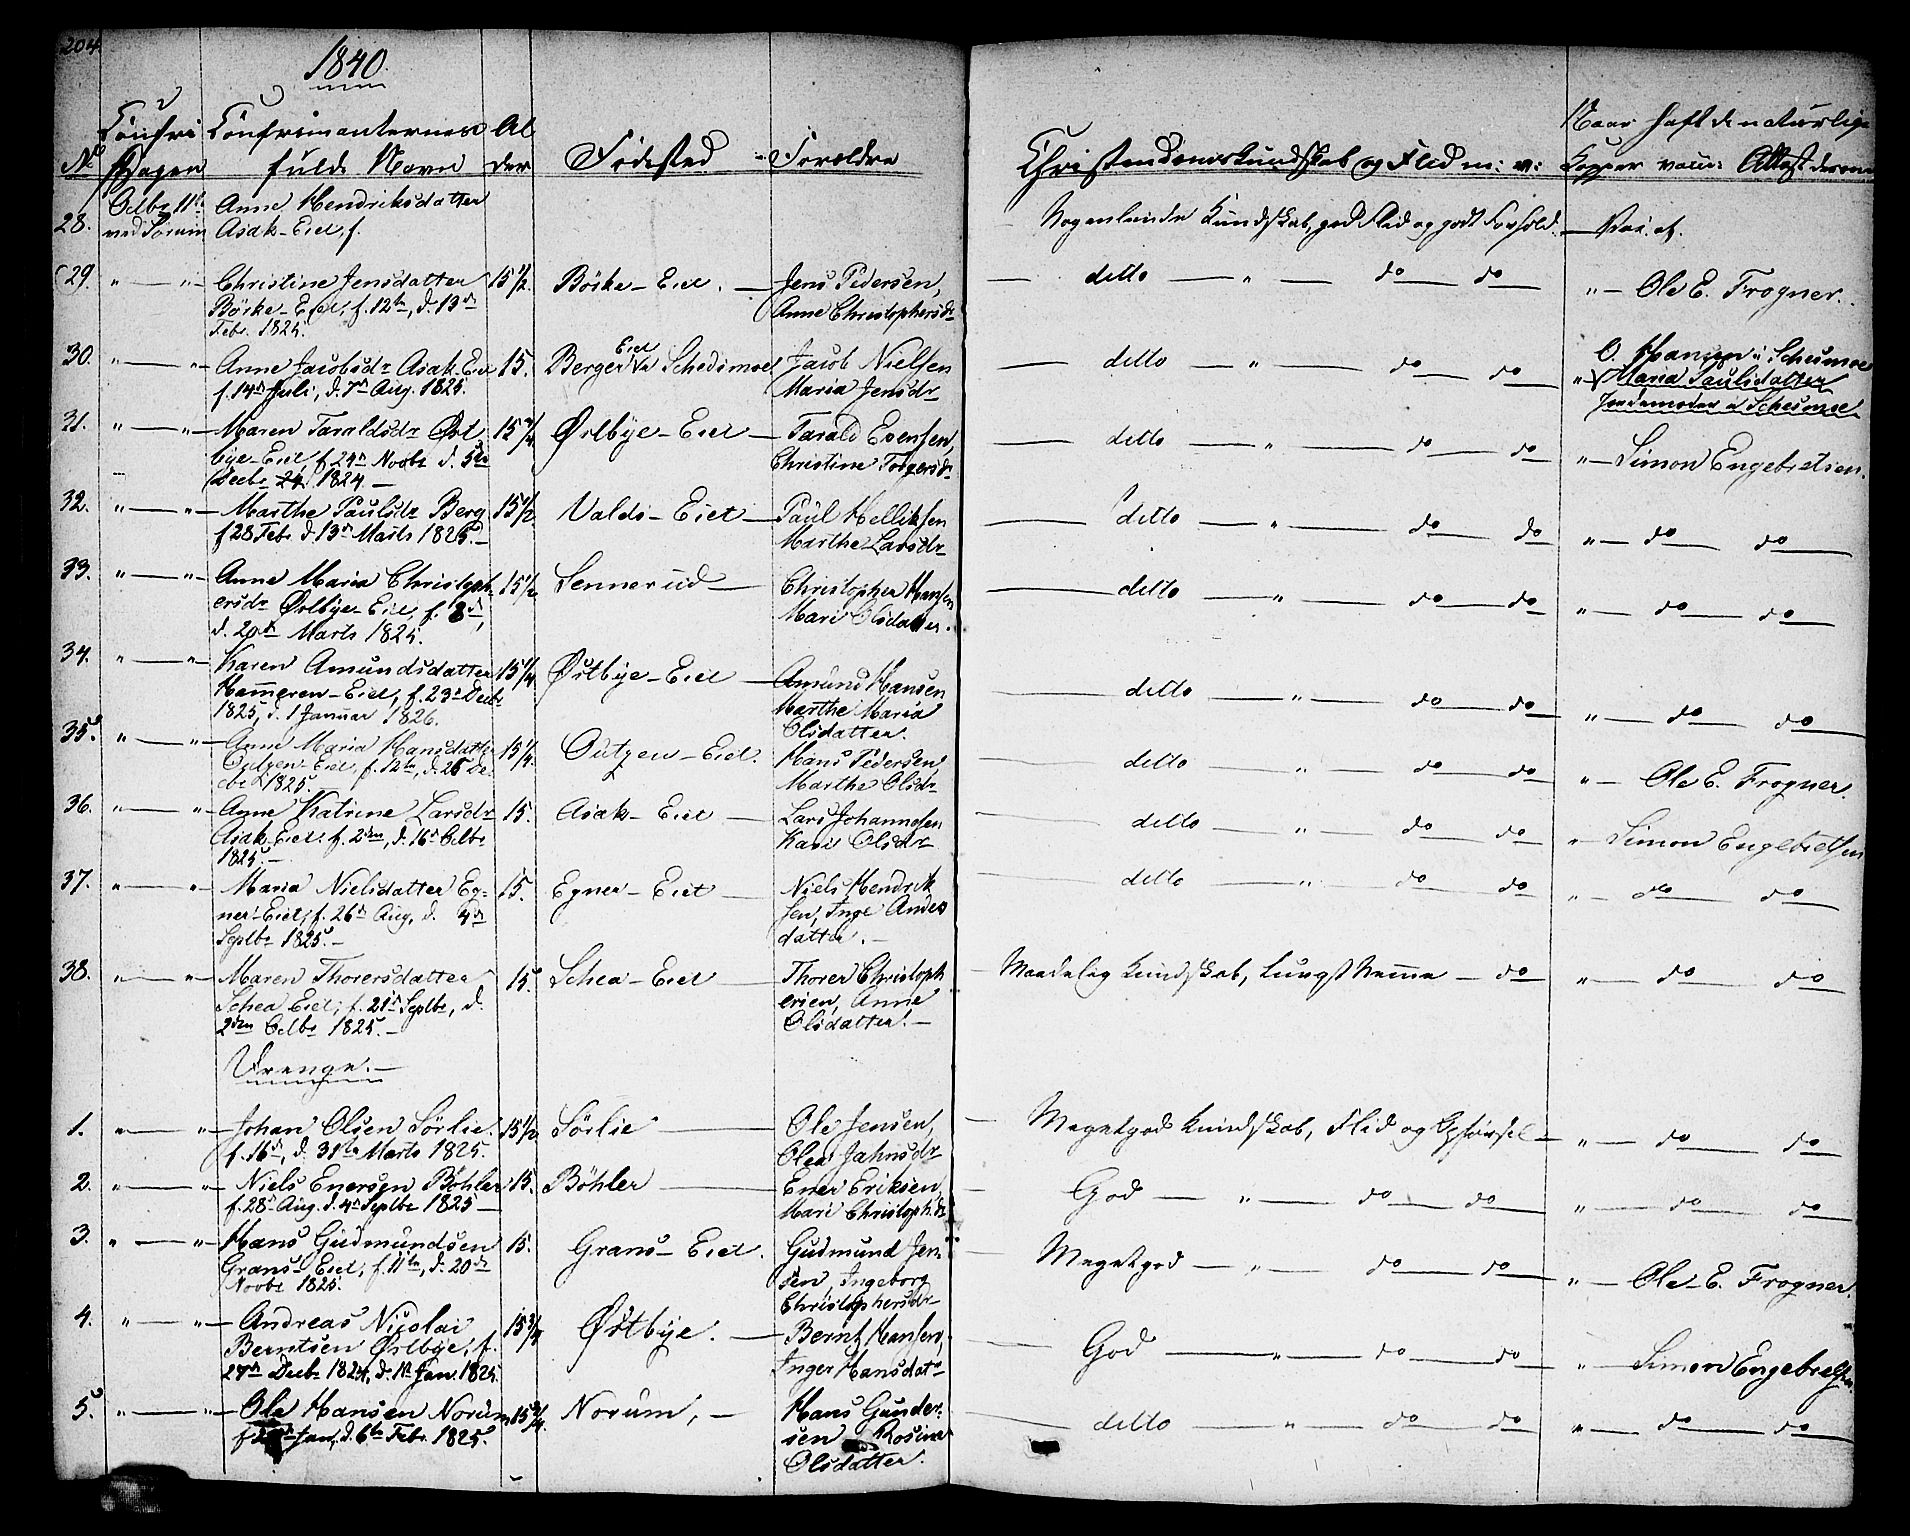 204.
1840.
No
Confri
Dagen
Confirmanternes
fulde Navn
Al
der
Födested
Forældre
Christendomskundskab og Flid m: v:
Naar haft de naturlige
Kopper vacc: Attest derom
28. Octbr 11te Anne Hendriksdatter Nogenlunde Kundskab, god Flid og godt Forhold. — Vac. at.
ved Sörum Asak-Eiet, f.
29. " — " Christine Jensdatter 15 1/2 Börke-Eiet. — Jens Pedersen, — ditto — " — do do " — Ole E. Frogner.
Börke-Eiet, f. 12te, d. 13de Anne Christophersdr
Febr. 1825.
30. " — " Anne Jacobsdr Asak-Eie 15. Berger Eiet Schedsmoe Jacob Nielsen — ditto — " — do — do O. Hansen i Schesmoe
f. 14de Juli, d. 7de Aug. 1825. Maria Jensdr " Maria Paulsdatter
Jordemoder i Schesmoe
31. " — " Maren Taraldsdr Øst 15 3/4 Østbye-Eiet — Tarald Evensen, — ditto — " — do — do " — Simon Engebretsen.
bye-Eiet, f. 24de Novbr d. 5te Christine Torgersdr
Decbr 1824. —
32. " — " Marthe Paulsdr Berg 15 1/2 Valds-Eiet — Paul Helliksen — ditto — " — do do " — do do
f 28 Febr d 13de Marts 1825. — Marthe Larsdr
33. " — " Anne Maria Christoph 15 1/2 Sennerud — Christopher Hansen — ditto — " — do — do " — do do
ersdr Østbye-Eiet, f. 8de, Mari Olsdatter.
d. 20de Marts 1825.
34. " — " Karen Amundsdatter 15 1/4 Østbye-Eiet — Amund Hansen — ditto — " — do do " — do do
Hameren-Eiet, f. 23de Decbr Marthe Maria
1825, d. 1 Januar 1826. Olsdatter.
35. " — " Anne Maria Hansdatter 15 1/4 Outgen-Eiet. Hans Pedersen — ditto — " — do do " — Ole E. Frogner.
Outgen-Eiet, f. 12te, d. 25 De Marthe Olsdr
cbr 1825.
36. " — " Anne Katrine Larsdr 15. Asak-Eiet — Lars Johannesen — ditto — " — do do " — Simon Engebretsen
Asak-Eiet f. 2den, d. 16de Octbr Kari Olsdr
1825. —
37. " — " Maria Nielsdatter Eg- 15. Egner-Eiet — Niels Hendrik — ditto — " — do do " — do do
ner-Eiet, f. 26de Aug, d. 4de sen, Inge Anders
Septbr 1825. — datter. —
38. " — " Maren Thorersdatter 15. Schea-Eiet — Thorer Christoph — Maadelig Kundskab, tungt Nemme — do " — do do
Schea Eiet, f. 21de Septbr, d. ersen, Anne
2den Octbr 1825. — Olsdatter. —
Drenge. —
1. " — " Johan Olsen Sörlie. 15 1/2 Sörlie — Ole Jensen, — Megetgod Kundskab, Flid og Opførsel — " — do do
f. 16de, d. 31te Marts 1825. Olea Jahnsdr
2. " — " Niels Enersen Böhler 15. Böhler — Ener Eriksen, — God — " — do do " — do do
f. 28de Aug. d. 4de Septbr 1825 — Mari Christoph.dr
3. " — " Hans Gudmundsen 15. Grans-Eiet. Gudmund Jen- — Megetgod — " — do do " — Ole E. Frogner.
Grans-Eiet, f. 11te, d. 20de sen, Ingeborg
Novbr 1825. Christophersdr
4. " — " Andreas Nicolai 15 3/4 Østbye. — Bernt Hansen, — God — " — do do " — Simon Engebretsen.
Berntsen Østbye, f. Inger Hansdatr
27de Decbr 1824, d. 1te Jan. 1825.
5. " — " Ole Hansen Norum 15 3/4 Norum, — Hans Gunder- — ditto — " — do do " — do do
Jan, d. 6te Febr. 1825. sen Rosine
Olsdatter.